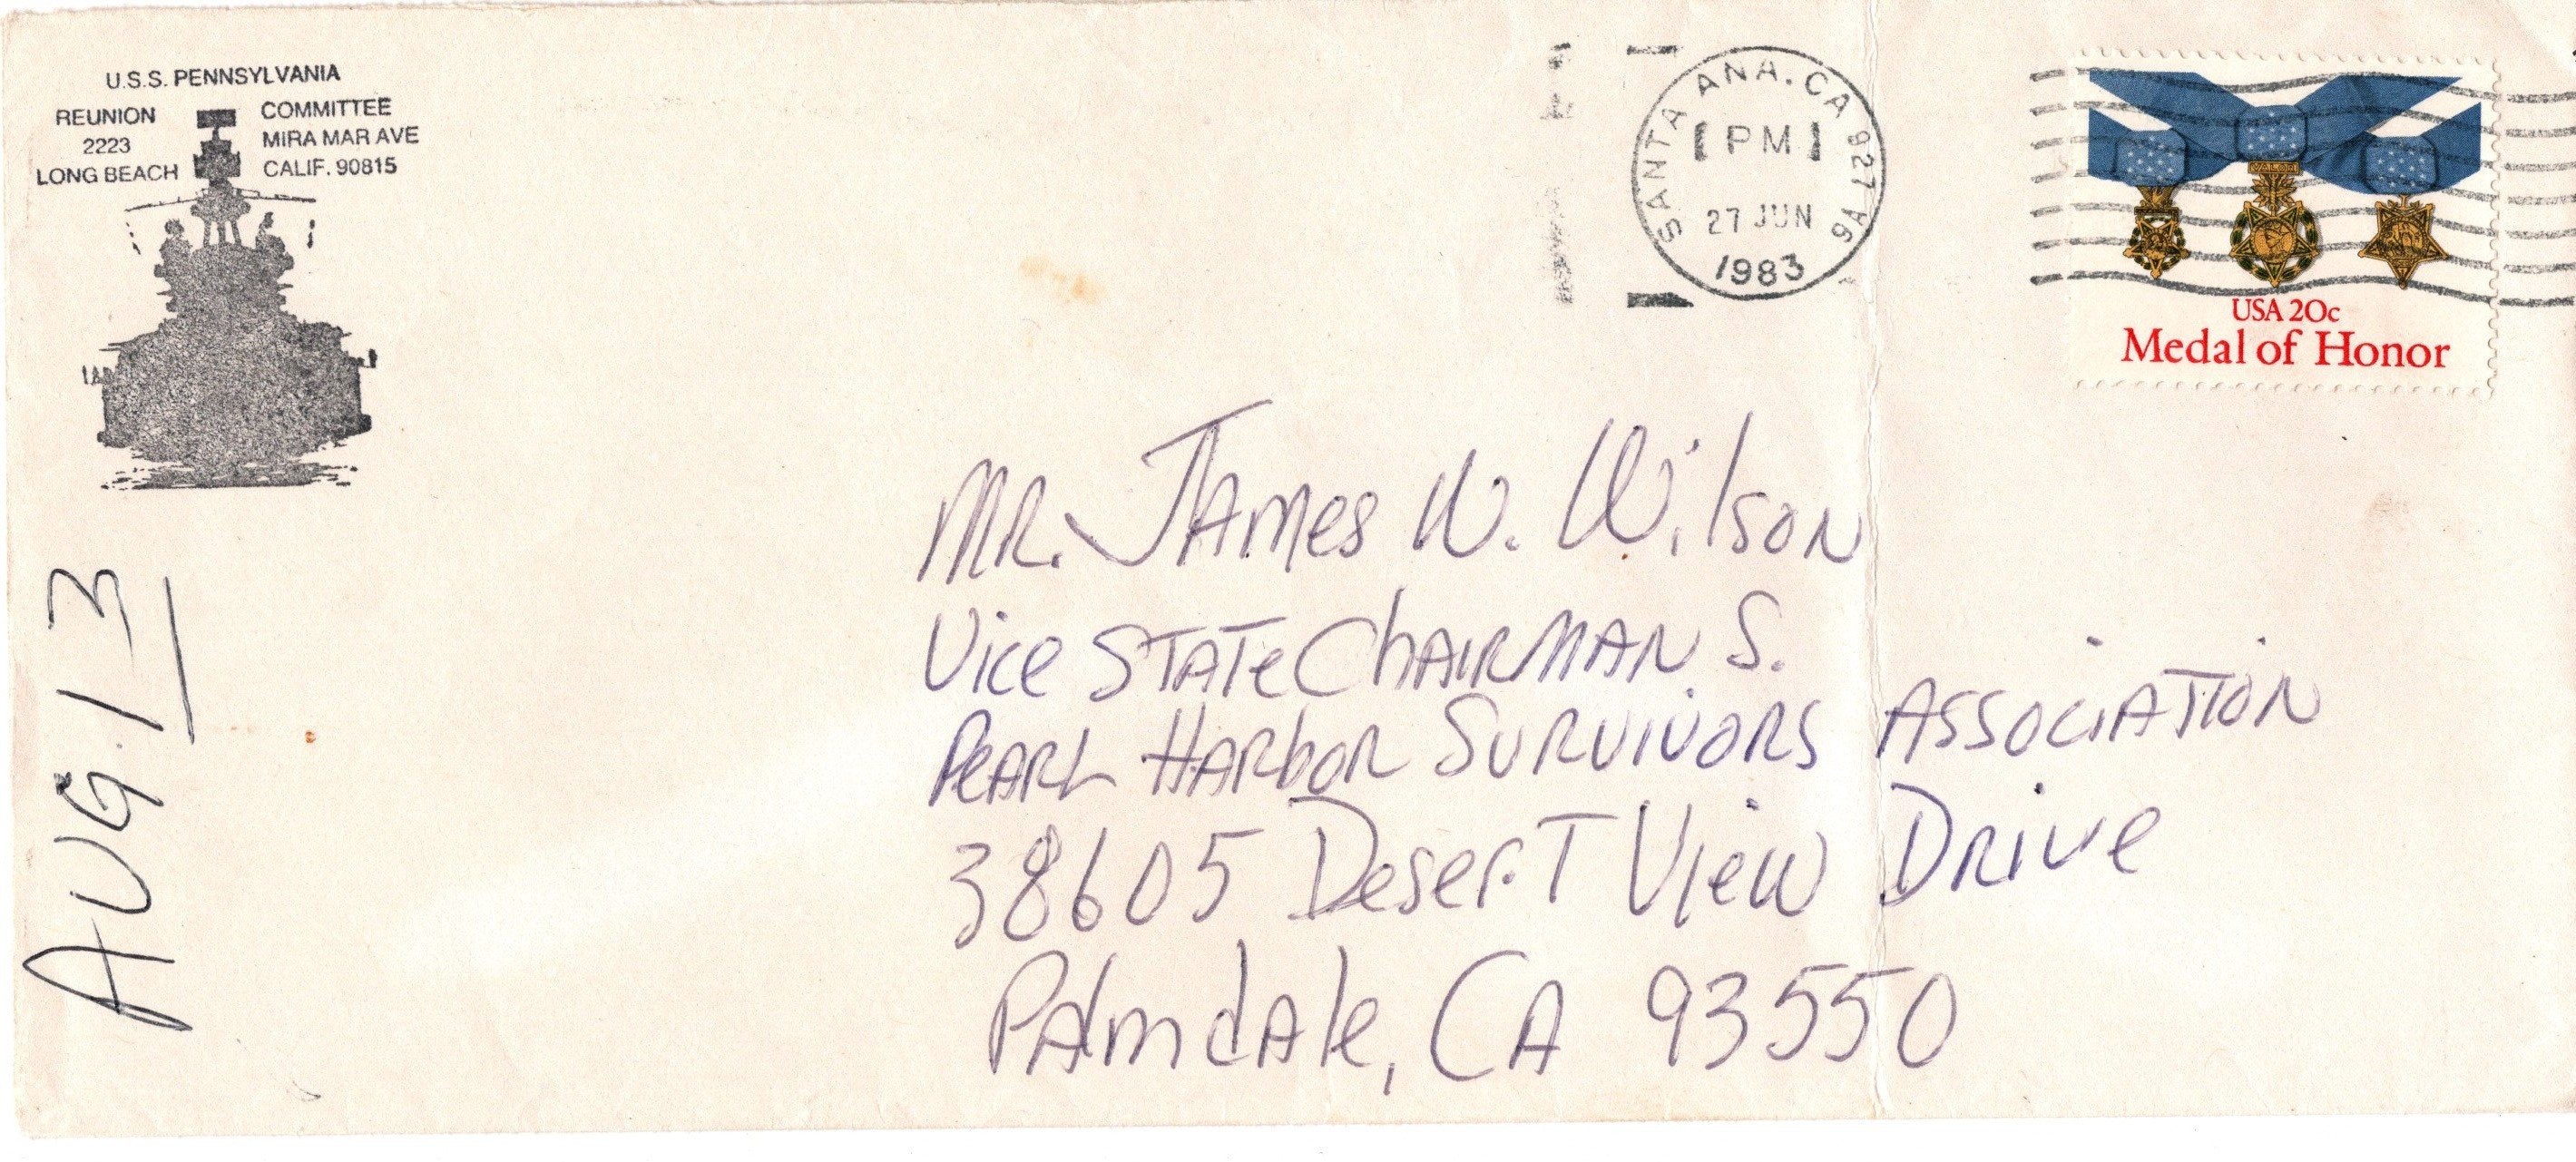 U.S.S. PENNSYLVANIA
REUNION COMMITTEE
2223 MIRA MAR AVE
LONG BEACH CALIF. 90815
SANTA ANA. CA 927
PM
27 JUN
1983
VALOR
USA 20c
Medal of Honor
MR. JAMes W. Wilson
Vice STATe ChAIRMAN S.
PeARL HARboR SURVIVORS ASSOCIATION
38605 DeserT VIew DRive
PAlmdAle, CA 93550
AUG. 13